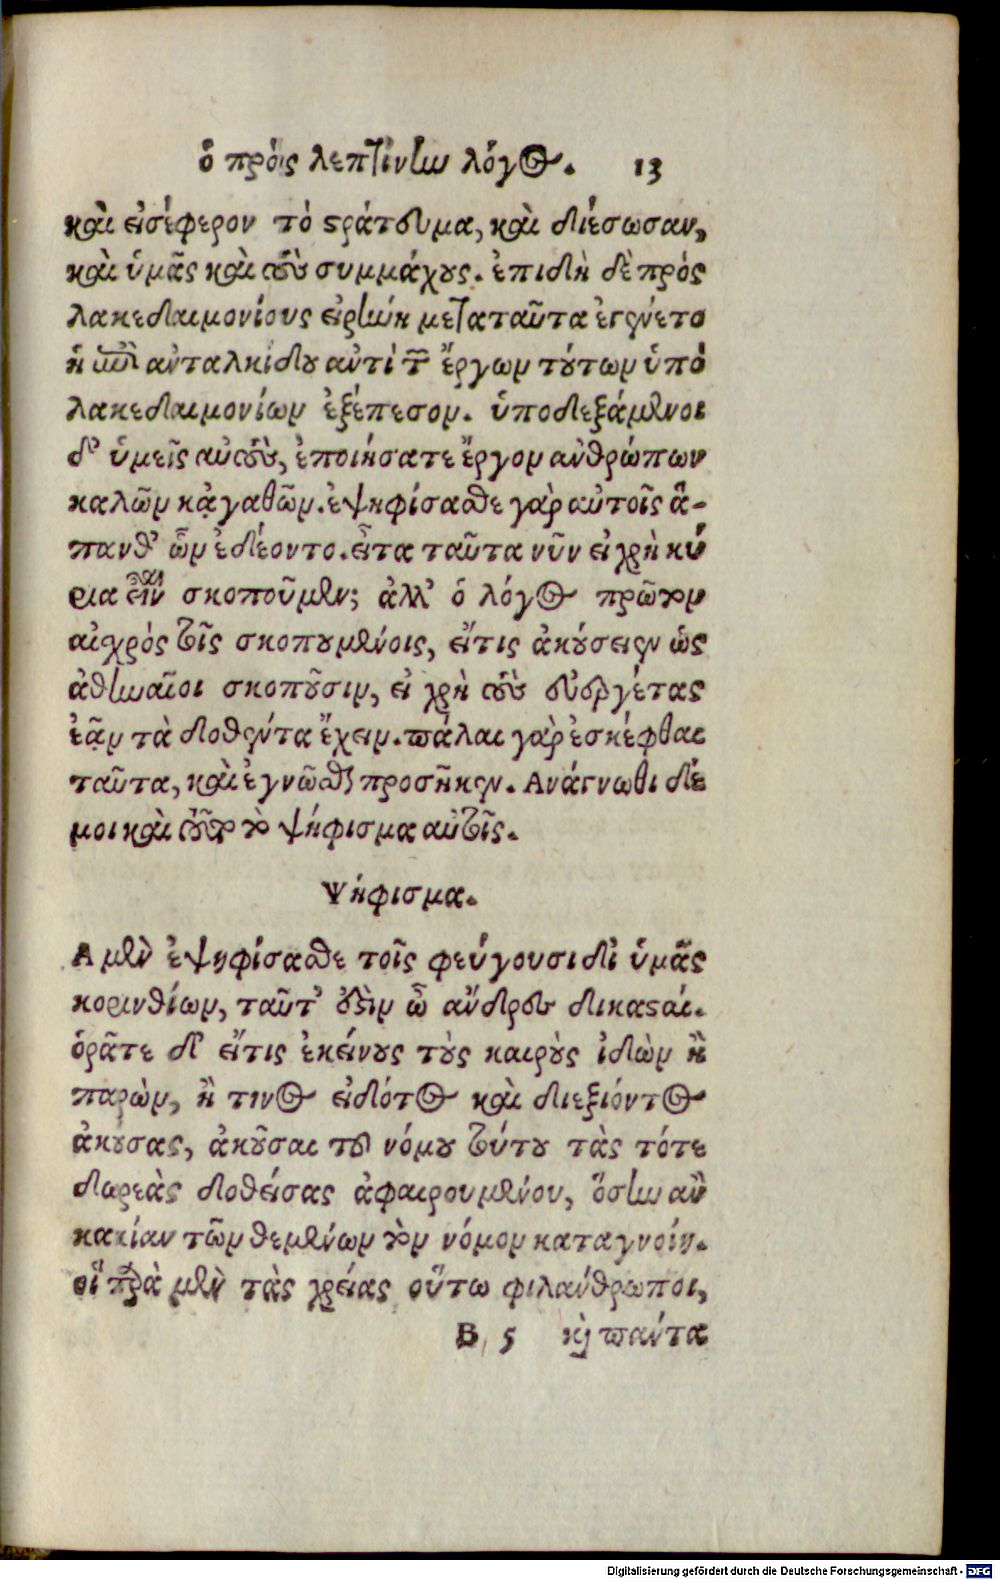 ὁ πρὸς λεπτίνην λόγος. 13
καὶ εἰσέφερον τὸ στράτευμα, καὶ διέσωσαν,
καὶ ὑμᾶς καὶ τοὺς συμμάχους. ἐπιδὴ δὲ πρὸς
λακεδαιμονίους εἰρήνη μετα ταῦτα ἐγένετο
ἡ ἐπὶ ἀνταλκίδου ἀντὶ τῶν ἔργων τούτων ὑπὸ
λακεδαιμονίων ἐξέπεσον. ὑποδεξάμενοι
δ' ὑμεῖς αὐτοὺς, ἐποιήσατε ἔργον ἀνθρώπων
καλῶν κἀγαθῶν. ἐψηφίσασθε γὰρ αὐτοῖς ἅ-
πανθ' ὧν ἐδέοντο. εἶτα ταῦτα νῦν εἰ χρὴ κύ
ρια εἶναι σκοποῦμεν; ἀλλ' ὁ λόγος πρῶτον
αἰσχρὸς τοῖς σκοπουμένοις, εἴ τις ἀκούσειεν ὡς
ἀθηναῖοι σκοποῦσιν, εἰ χρὴ τοὺς εὐεργέτας
ἐᾷν τὰ δοθέντα ἔχειν. πάλαι γὰρ ἐσκέφθαι
ταῦτα, καὶ ἐγνῶσθαι προσῆκεν. Ἀνάγνωθι δέ
μοι καὶ τοῦτο τὸ ψήφισμα αὐτοῖς.
Ψήφισμα.
Ἃ μὲν ἐψηφίσασθε τοῖς φεύγουσι δι' ὑμᾶς
κορινθίων, ταῦτ' ἐστὶν ὦ ἄνδρες δικασταί.
ὁρᾶτε δ' εἴ τις ἐκείνους τοὺς καιροὺς ἰδὼν ἢ
παρὼν, ἤ τινος εἰδότος καὶ διεξιόντος
ἀκούσας, ἀκοῦσαι τοῦ νόμου τούτου τὰς τότε
δωρεὰς δοθείσας ἀφαιρουμένου, ὅσην ἂν
κακίαν τῶν θεμένων τὸν νόμον καταγνοίη.
οἳ παρὰ μὲν τὰς χρείας οὕτω φιλάνθρωποι,
B 5 καὶ πάντα
Digitalisierung gefördert durch die Deutsche Forschungsgemeinschaft - DFG